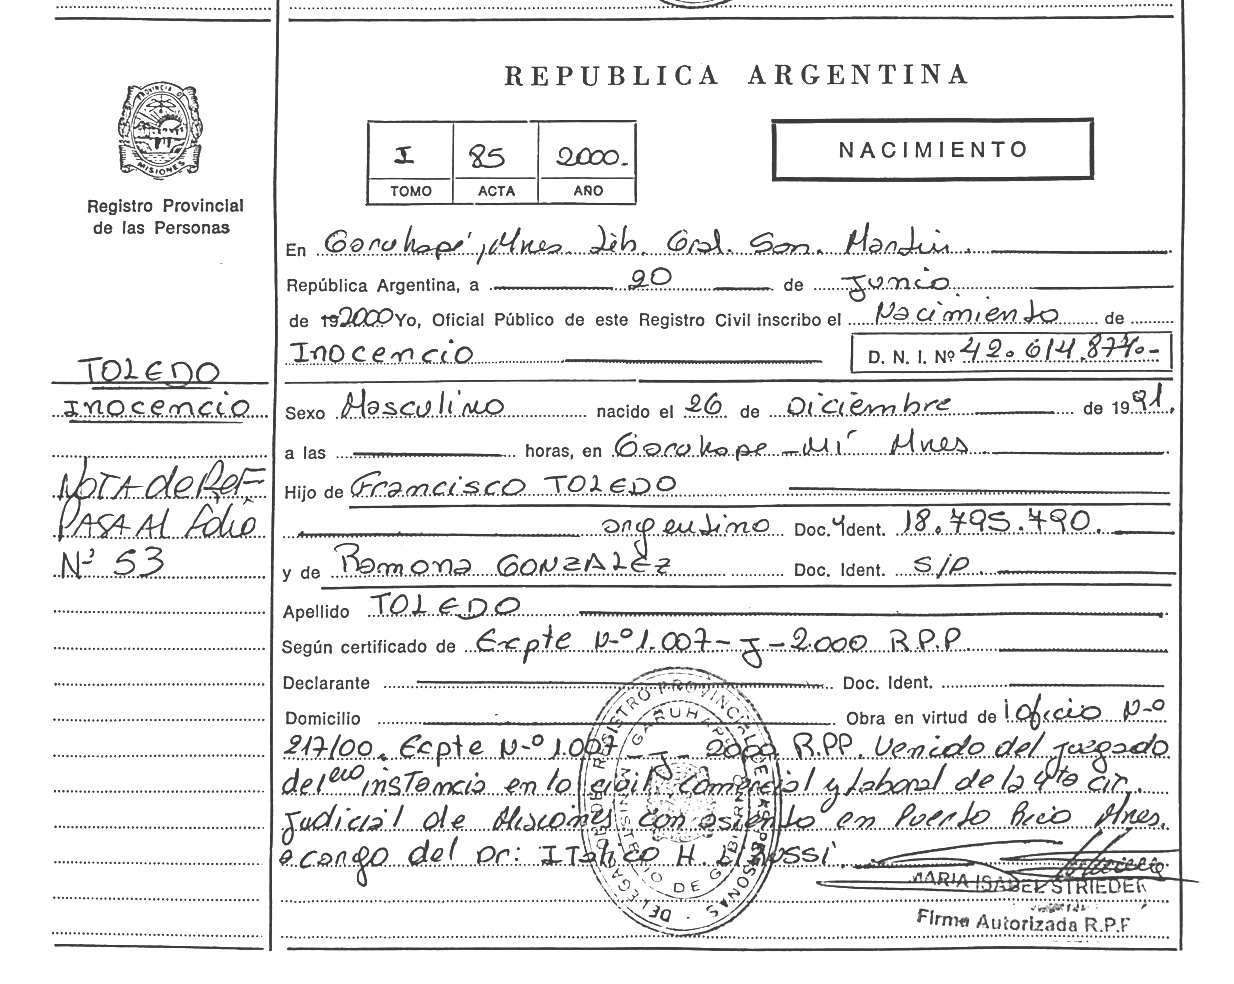 REPUBLICA ARGENTINA
PROVINCIA D
MISIONES
Registro Provincial
de las Personas
I 85 2000.
TOMO ACTA AÑO
NACIMIENTO
En Garuhapé, Mnes. Lib. Gral. San. Martín.
República Argentina, a 20 de Junio
de 192000 Yo, Oficial Público de este Registro Civil inscribo el Nacimiento de
Inocencio D. N. I. Nº 42.614.874.-
TOLEDO
Inocencio
Sexo Masculino nacido el 26 de Diciembre de 1991.
a las horas, en Garuhape - Mí Mnes
NOTA de REF
PASA Al folio
Nº 53
Hijo de Francisco TOLEDO
argentino Doc. Ident. 18.795.790.
y de Ramona GONZALEZ Doc. Ident. S/D
Apellido TOLEDO
Según certificado de Excpte Nº 1.007-J-2.000 R.P.P.
Declarante Doc. Ident.
Domicilio Obra en virtud de oficio Nº
217/00. Ecpte Nº 1.007 - J - 2000 R.P.P. Venido del juzgado
del 1ero instancia en lo civil, comercial y laboral de la 4ta cir.
judicial de Misiones con asiento en Puerto Rico Mnes.
a cargo del Dr: ITalico H.
DELEGACION REGISTRO PROVINCIAL DE LAS PERSONAS
GARUHAPE
MINISTERIO DE GOBIERNO
MARIA ISABEL STRIEDER
Firma Autorizada R.P.P